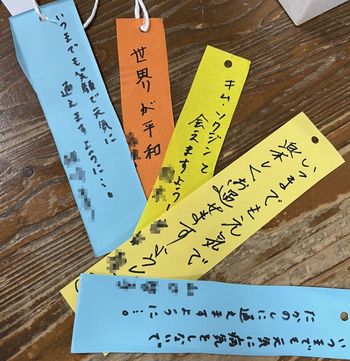 いつまでも笑顔で元気に
過せますように…。
世界が平和
キム・ソクジンと
会えますよう
いつまでも元気で
楽しくお過せますように
いつまでも元気に病気をしないで
たのしに過せますように…。